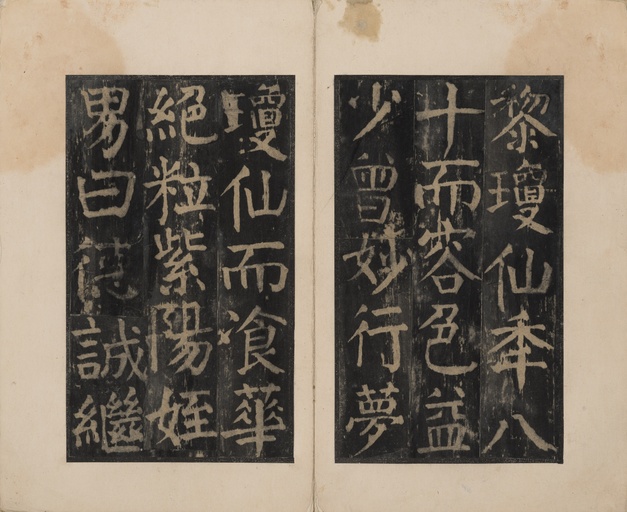 黎瓊仙年八
十而容色益
少曾妙行夢
瓊仙而飡華
絕粒紫陽姪
男曰德誠繼